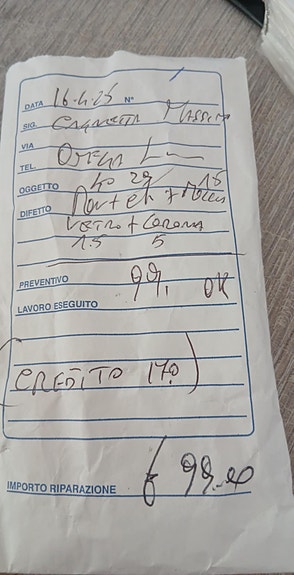 DATA 16.4.25 N°
SIG. MASSIMO
VIA
TEL. OMEGA
OGGETTO 40 29 15
DIFETTO
VETRO + CORONA
15 5
PREVENTIVO 99, OK
LAVORO ESEGUITO
(CREDITO 170)
IMPORTO RIPARAZIONE € 99.00